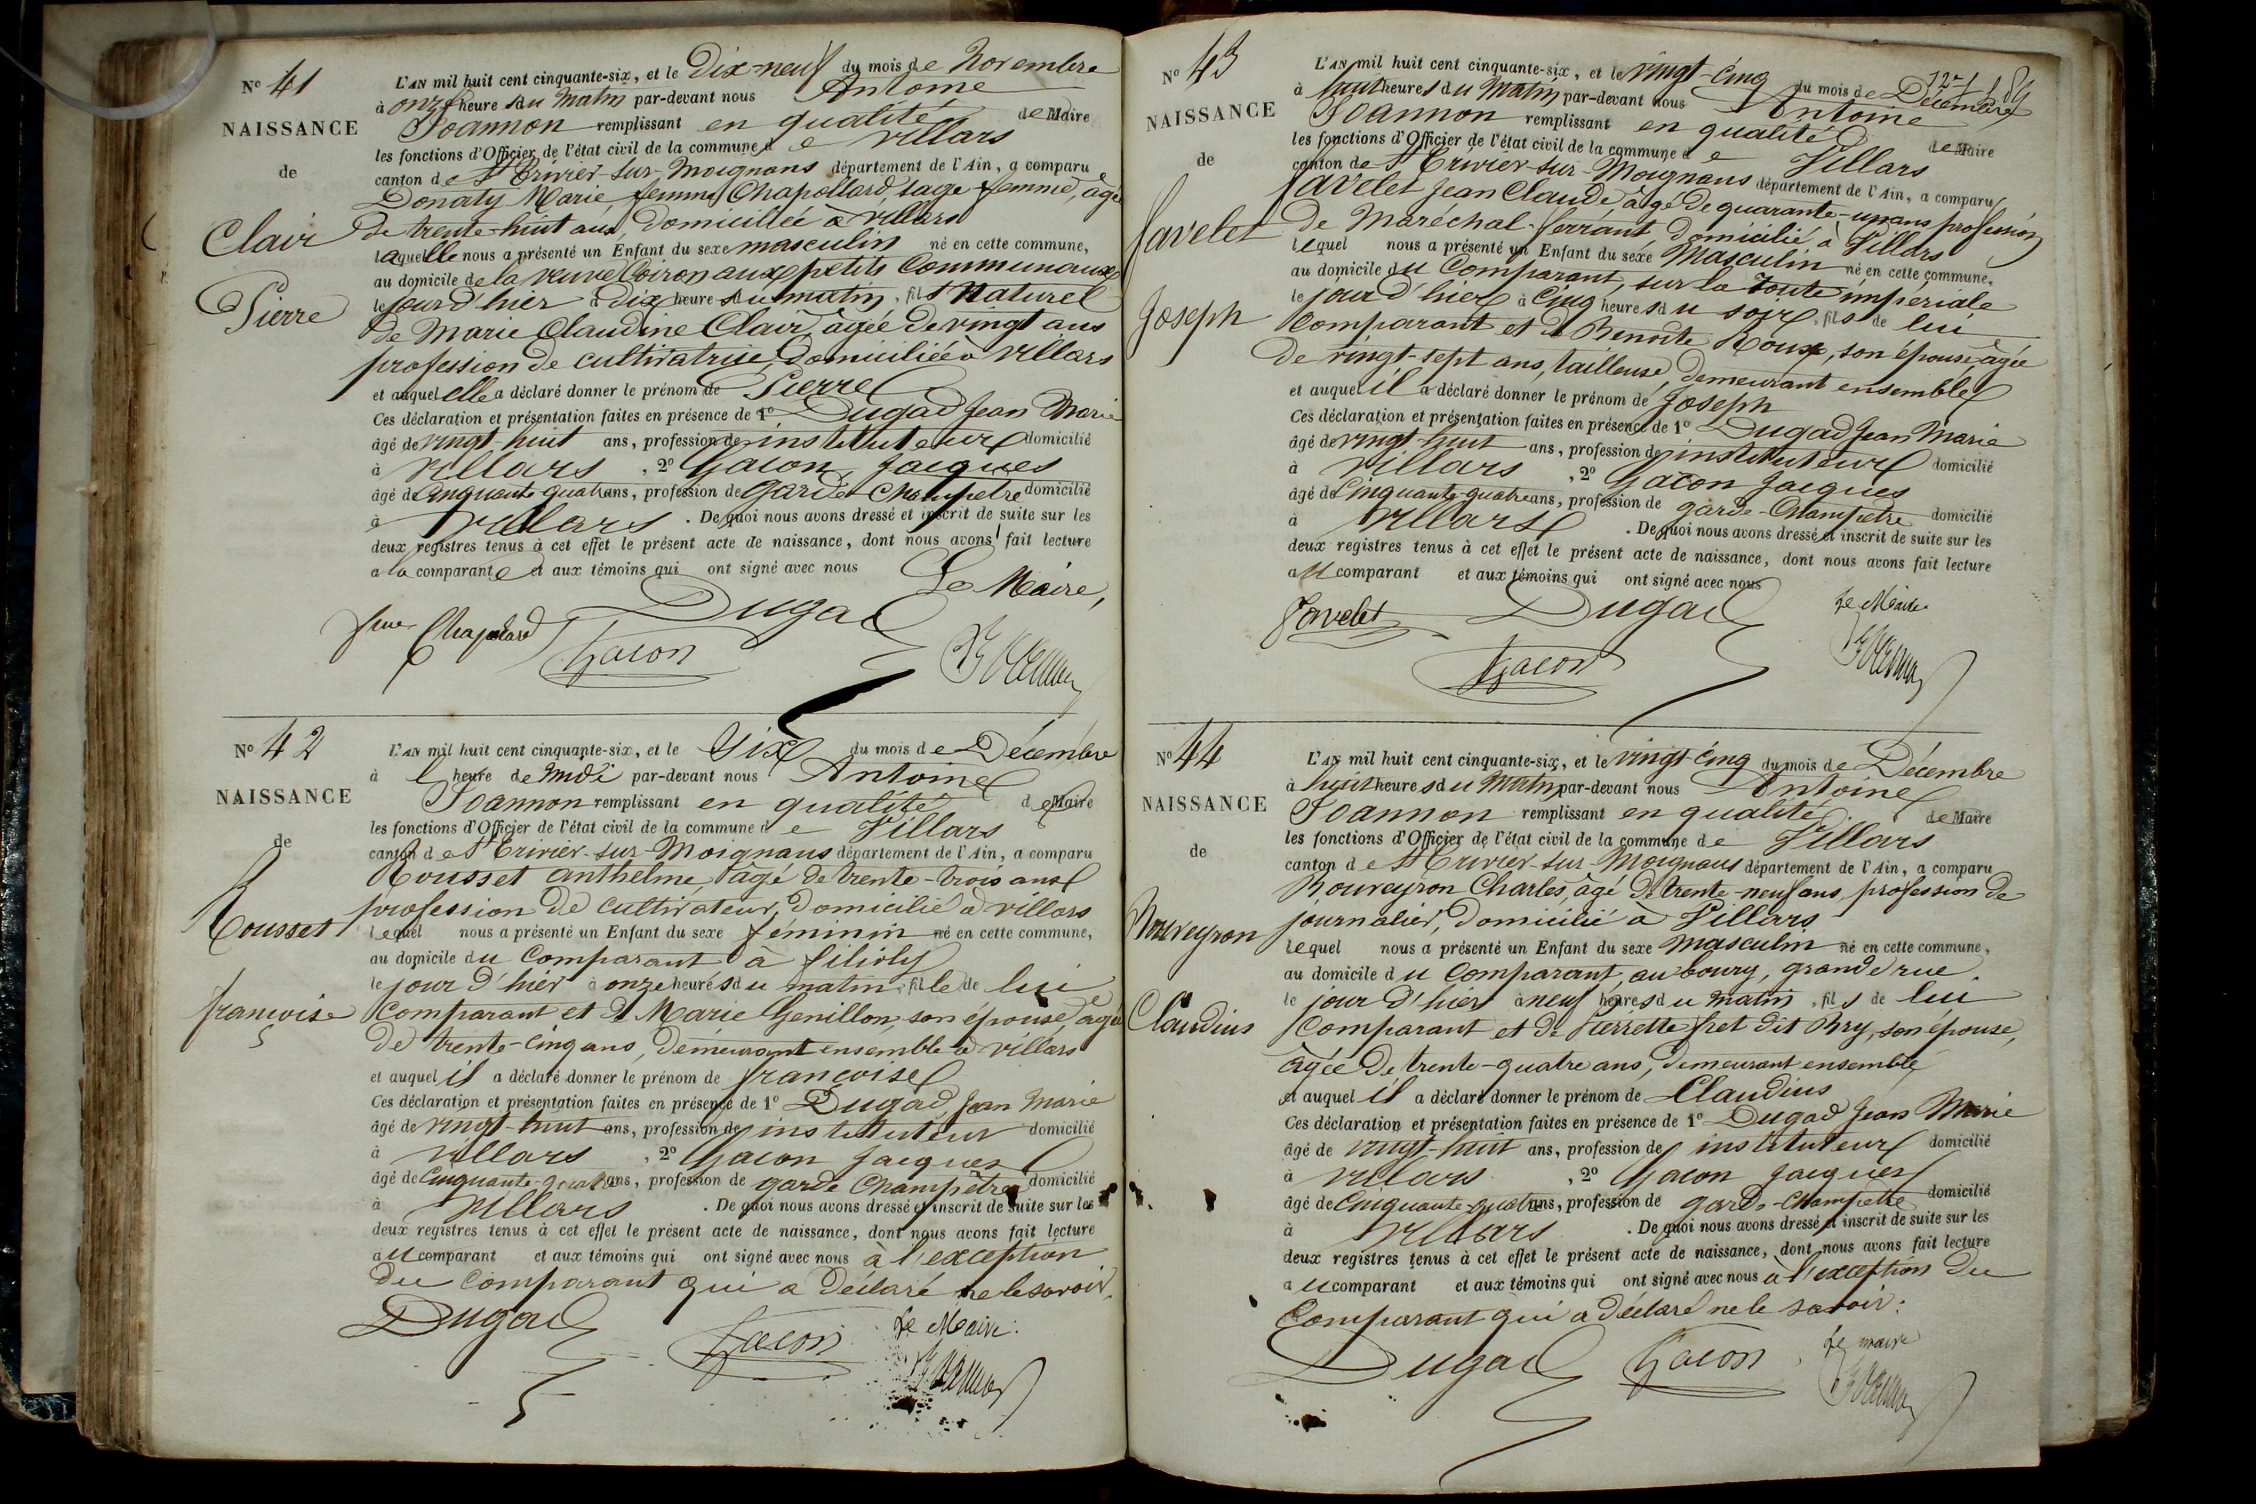 N° 41
NAISSANCE
de
Clair
Pierre
L'AN mil huit cent cinquante-six, et le Dix-neuf du mois de Novembre
à onze heures du matin par-devant nous Antoine
Joannon remplissant en qualité de Maire
les fonctions d'Officier de l'état civil de la commune de Villars
canton de St Trivier-sur-Moignans département de l'Ain, a comparu
Donaty Marie, femme Chapollard, sage-femme, âgée
de trente-huit ans, domiciliée à Villars
laquelle nous a présenté un Enfant du sexe masculin né en cette commune,
au domicile de la veuve Coiron aux petits Communaux
le jour d'hier à dix heures du matin, fils Naturel
de Marie Claudine Clair, âgée de vingt ans
profession de cultivatrice, domiciliée à Villars
et auquel elle a déclaré donner le prénom de Pierre
Ces déclaration et présentation faites en présence de 1° Dugad Jean Marie
âgé de vingt-huit ans, profession de instituteur domicilié
à Villars, 2° Gacon Jacques
âgé de Cinquante-quatre ans, profession de garde Champetre domicilié
à Villars. De quoi nous avons dressé et inscrit de suite sur les
deux registres tenus à cet effet le présent acte de naissance, dont nous avons fait lecture
a la comparante et aux témoins qui ont signé avec nous
Le Maire,
fme Chapolard Dugad
Gacon
N° 42
NAISSANCE
de
Rousset
françoise
L'AN mil huit cent cinquante-six, et le Six du mois de Décembre
à l'heure de midi par-devant nous Antoine
Joannon remplissant en qualité de Maire
les fonctions d'Officier de l'état civil de la commune de Villars
canton de St Trivier-sur-Moignans département de l'Ain, a comparu
Rousset Anthelme, âgé de trente-trois ans
profession de cultivateur, domicilié à Villars
lequel nous a présenté un Enfant du sexe féminin né en cette commune,
au domicile du Comparant à
le jour d'hier à onze heures du matin, fille de lui
Comparant et de Marie Genillon, son épouse, âgée
de trente-cinq ans, demeurant ensemble à Villars
et auquel il a déclaré donner le prénom de françoise
Ces déclaration et présentation faites en présence de 1° Dugad Jean Marie
âgé de vingt-huit ans, profession de instituteur domicilié
à Villars, 2° Gacon Jacques
âgé de Cinquante-quatre ans, profession de garde Champêtre domicilié
à Villars. De quoi nous avons dressé et inscrit de suite sur les
deux registres tenus à cet effet le présent acte de naissance, dont nous avons fait lecture
au comparant et aux témoins qui ont signé avec nous à l'exception
du Comparant qui a déclaré ne le savoir.
Dugad Gacon Le Maire.
N° 43
NAISSANCE
de
Javelet
Joseph
L'AN mil huit cent cinquante-six, et le vingt-cinq du mois de Décembre
à huit heures du matin par-devant nous Antoine
Joannon remplissant en qualité de Maire
les fonctions d'Officier de l'état civil de la commune de Villars
canton de St Trivier-sur-Moignans département de l'Ain, a comparu
Javelet Jean Claude, âgé de quarante-un ans profession
de Maréchal-ferrant, domicilié à Villars
lequel nous a présenté un Enfant du sexe Masculin né en cette commune,
au domicile du Comparant, sur la route impériale
le jour d'hier à Cinq heures du soir, fils de lui
Comparant et de Benoite Roux, son épouse, âgée
de vingt-sept ans, tailleuse, demeurant ensemble
et auquel il a déclaré donner le prénom de Joseph
Ces déclaration et présentation faites en présence de 1° Dugad Jean Marie
âgé de vingt-huit ans, profession de instituteur domicilié
à Villars, 2° Gacon Jacques
âgé de Cinquante-quatre ans, profession de garde-Champetre domicilié
à Villars. De quoi nous avons dressé et inscrit de suite sur les
deux registres tenus à cet effet le présent acte de naissance, dont nous avons fait lecture
au comparant et aux témoins qui ont signé avec nous
Javelet Dugad Le Maire
Gacon
N° 44
NAISSANCE
de
Rouveyron
Claudius
L'AN mil huit cent cinquante-six, et le vingt-cinq du mois de Décembre
à huit heures du matin par-devant nous Antoine
Joannon remplissant en qualité de Maire
les fonctions d'Officier de l'état civil de la commune de Villars
canton de St Trivier-sur-Moignans département de l'Ain, a comparu
Rouveyron Charles, âgé de trente-neuf ans, profession de
journalier, domicilié à Villars
lequel nous a présenté un Enfant du sexe masculin né en cette commune,
au domicile du Comparant, au bourg, grande rue.
le jour d'hier à neuf heures du matin, fils de lui
Comparant et de Pierrette fret dit Bry, son épouse,
âgée de trente-quatre ans, demeurant ensemble
et auquel il a déclaré donner le prénom de Claudius
Ces déclaration et présentation faites en présence de 1° Dugad Jean Marie
âgé de vingt-huit ans, profession de instituteur domicilié
à Villars, 2° Gacon Jacques
âgé de Cinquante-quatre ans, profession de garde-Champetre domicilié
à Villars. De quoi nous avons dressé et inscrit de suite sur les
deux registres tenus à cet effet le présent acte de naissance, dont nous avons fait lecture
au comparant et aux témoins qui ont signé avec nous à l'exception du
Comparant qui a déclaré ne le savoir.
Dugad Gacon Le maire